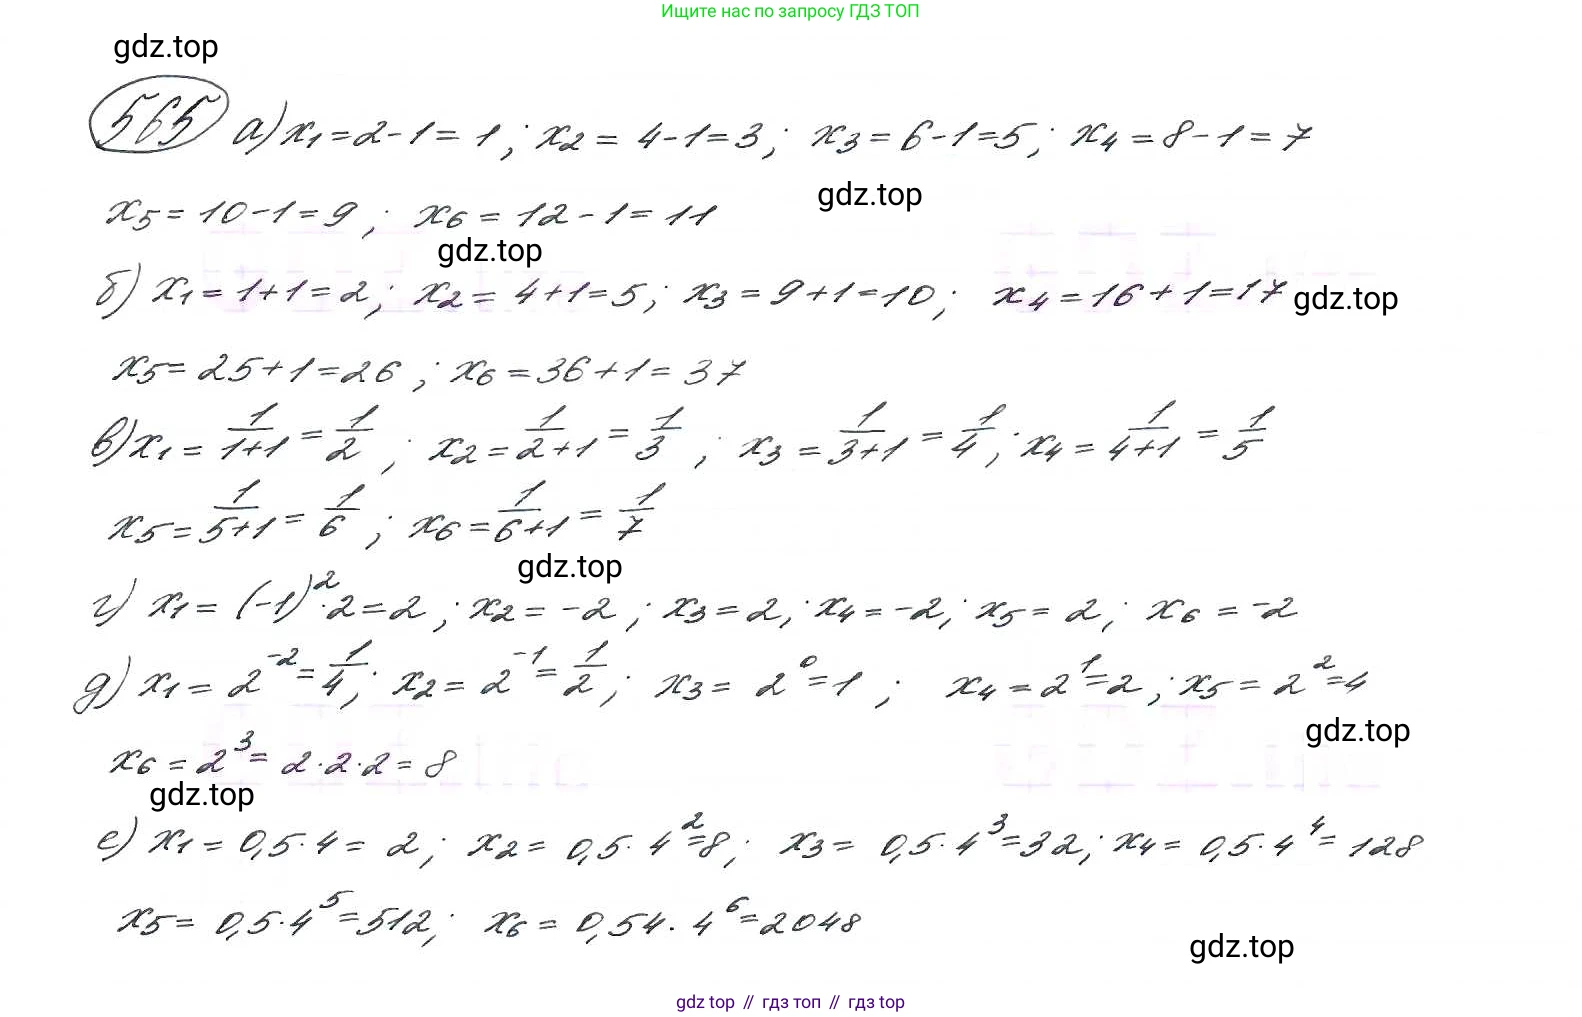 Ищите нас по запросу ГДЗ ТОП
gdz.top
565 а) x₁ = 2 - 1 = 1; x₂ = 4 - 1 = 3; x₃ = 6 - 1 = 5; x₄ = 8 - 1 = 7
gdz.top
x₅ = 10 - 1 = 9; x₆ = 12 - 1 = 11
gdz.top
б) x₁ = 1 + 1 = 2; x₂ = 4 + 1 = 5; x₃ = 9 + 1 = 10; x₄ = 16 + 1 = 17
gdz.top
x₅ = 25 + 1 = 26; x₆ = 36 + 1 = 37
в) x₁ = 1/(1+1) = 1/2; x₂ = 1/(2+1) = 1/3; x₃ = 1/(3+1) = 1/4; x₄ = 1/(4+1) = 1/5
x₅ = 1/(5+1) = 1/6; x₆ = 1/(6+1) = 1/7
gdz.top
г) x₁ = (-1)² · 2 = 2; x₂ = -2; x₃ = 2; x₄ = -2; x₅ = 2; x₆ = -2
д) x₁ = 2⁻² = 1/4; x₂ = 2⁻¹ = 1/2; x₃ = 2⁰ = 1; x₄ = 2¹ = 2; x₅ = 2² = 4
gdz.top
x₆ = 2³ = 2 · 2 · 2 = 8
gdz.top
е) x₁ = 0,5 · 4 = 2; x₂ = 0,5 · 4² = 8; x₃ = 0,5 · 4³ = 32; x₄ = 0,5 · 4⁴ = 128
x₅ = 0,5 · 4⁵ = 512; x₆ = 0,54 · 4⁶ = 2048
gdz.top
gdz top // гдз топ // гдз top